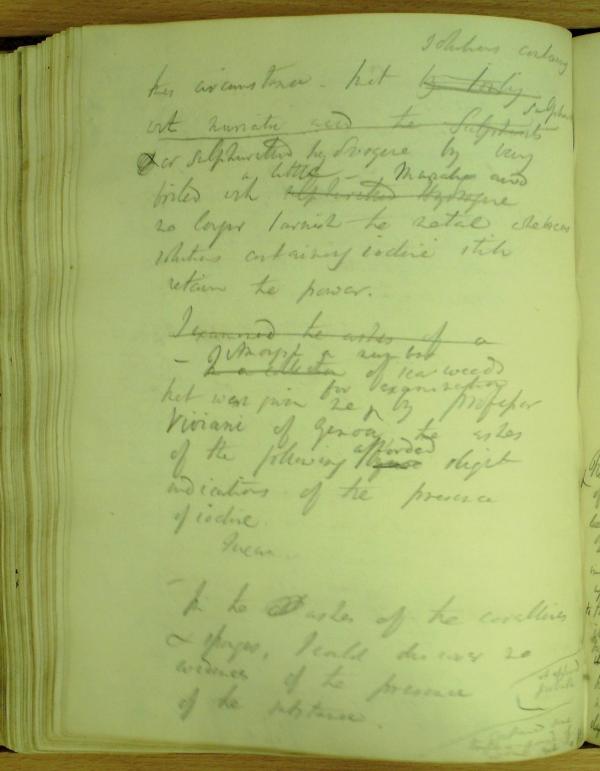 Solutions containing
this circumstance - that by being
with muriatic acid the Sulphurets
or sulphuretted hydrogene by being
boiled with a little - Muriatic acid sulphuretted Hydrogene
no longer tarnish the metal whereas
solutions containing iodine still
retain the power.
I examined the ashes of a
- Amongst a number
In a collection of sea weeds
that were given me for examination by Professor
Viviani of Genoa, the ashes
of the following afforded gave slight
indications of the presence
of iodine.
In the ashes of the corallines
& sponges, I could discover no
evidences of the presence
of the substance.